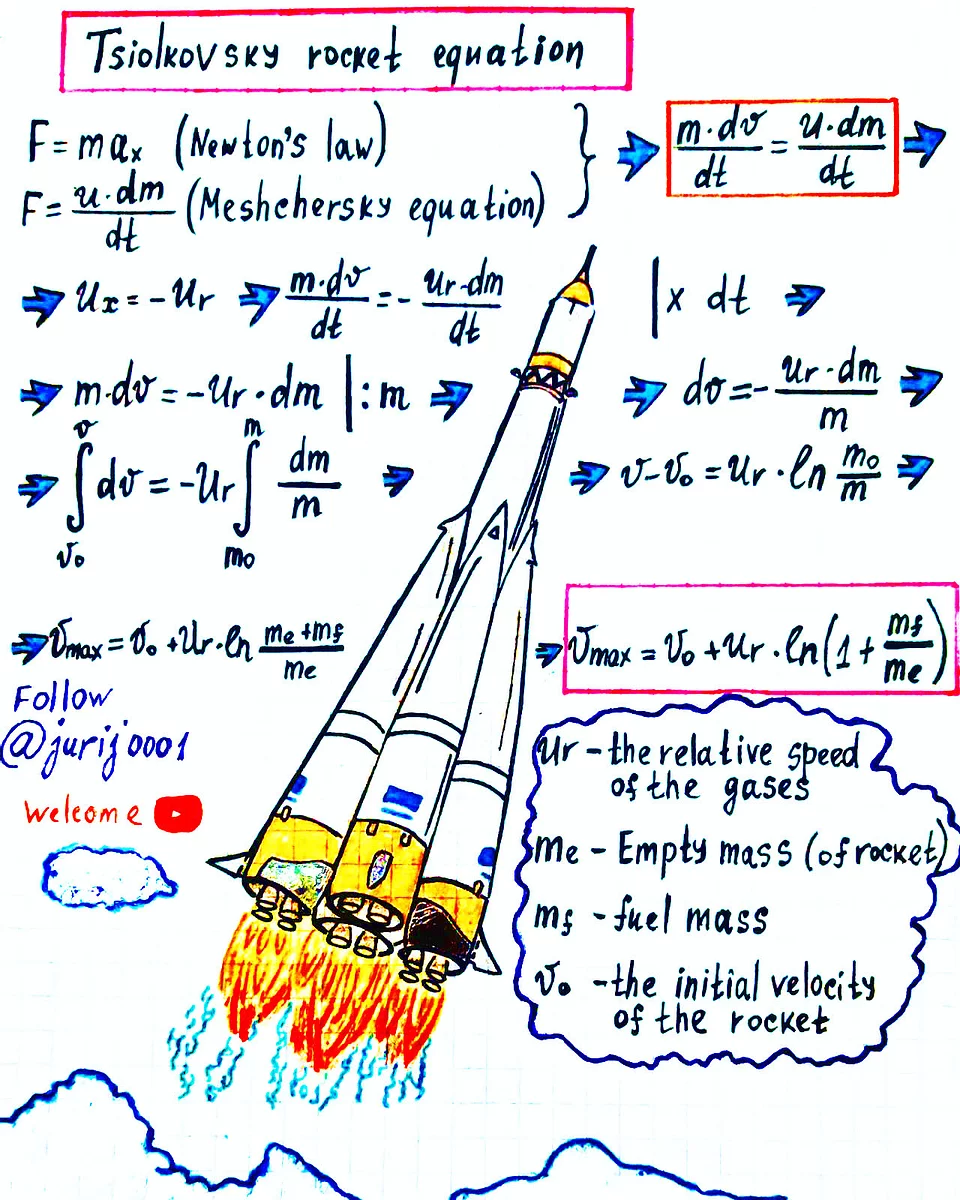 Tsiolkovsky rocket equation
F = maₓ (Newton's law)
F = u·dm/dt (Meshchersky equation) } ⇒ m·dv/dt = u·dm/dt ⇒
⇒ uₓ = -uᵣ ⇒ m·dv/dt = - uᵣ·dm/dt | x dt ⇒
⇒ m·dv = -uᵣ·dm | : m ⇒ ⇒ dv = - uᵣ·dm/m ⇒
⇒ ∫ᵥ₀ᵛ dv = -uᵣ ∫ₘ₀ᵐ dm/m ⇒ ⇒ v-v₀ = uᵣ·ln m₀/m ⇒
⇒ vmax = v₀ + uᵣ·ln (me + mf)/me ⇒ vmax = v₀ + uᵣ·ln(1 + mf/me)
Follow
@jurij0001
Welcome
uᵣ - the relative speed
of the gases
me - Empty mass (of rocket)
mf - fuel mass
v₀ - the initial velocity
of the rocket